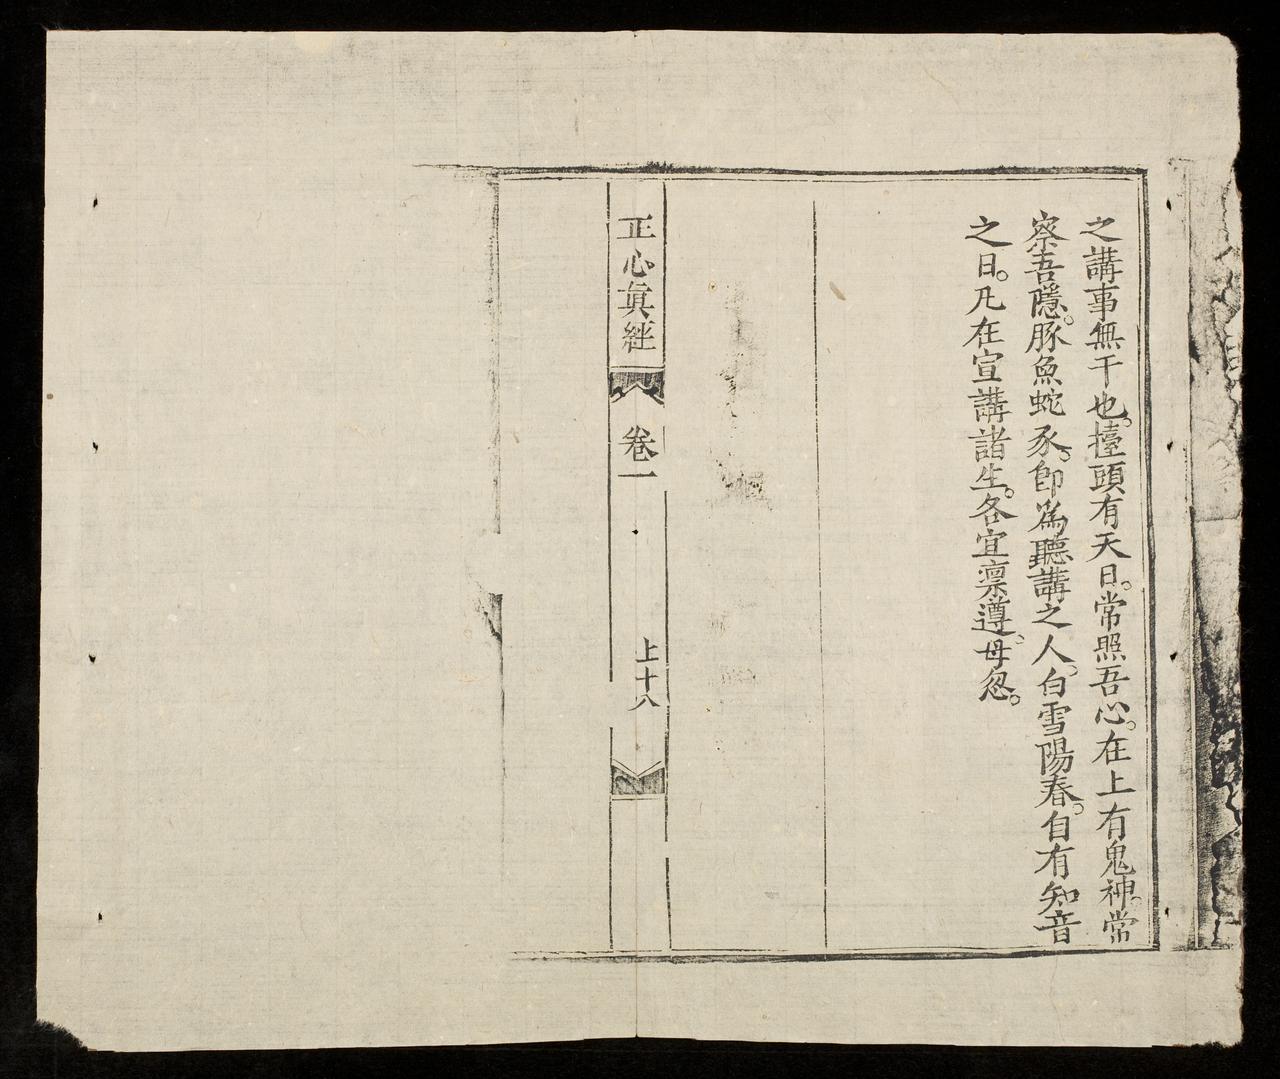 之講事無干也。擡頭有天日。常照吾心。在上有鬼神。常
察吾隱。豚魚蛇豕。即為聽講之人。白雪陽春。自有知音
之日。凡在宣講諸生。各宜凛遵。毋忽。
正心真經 卷一 上十八